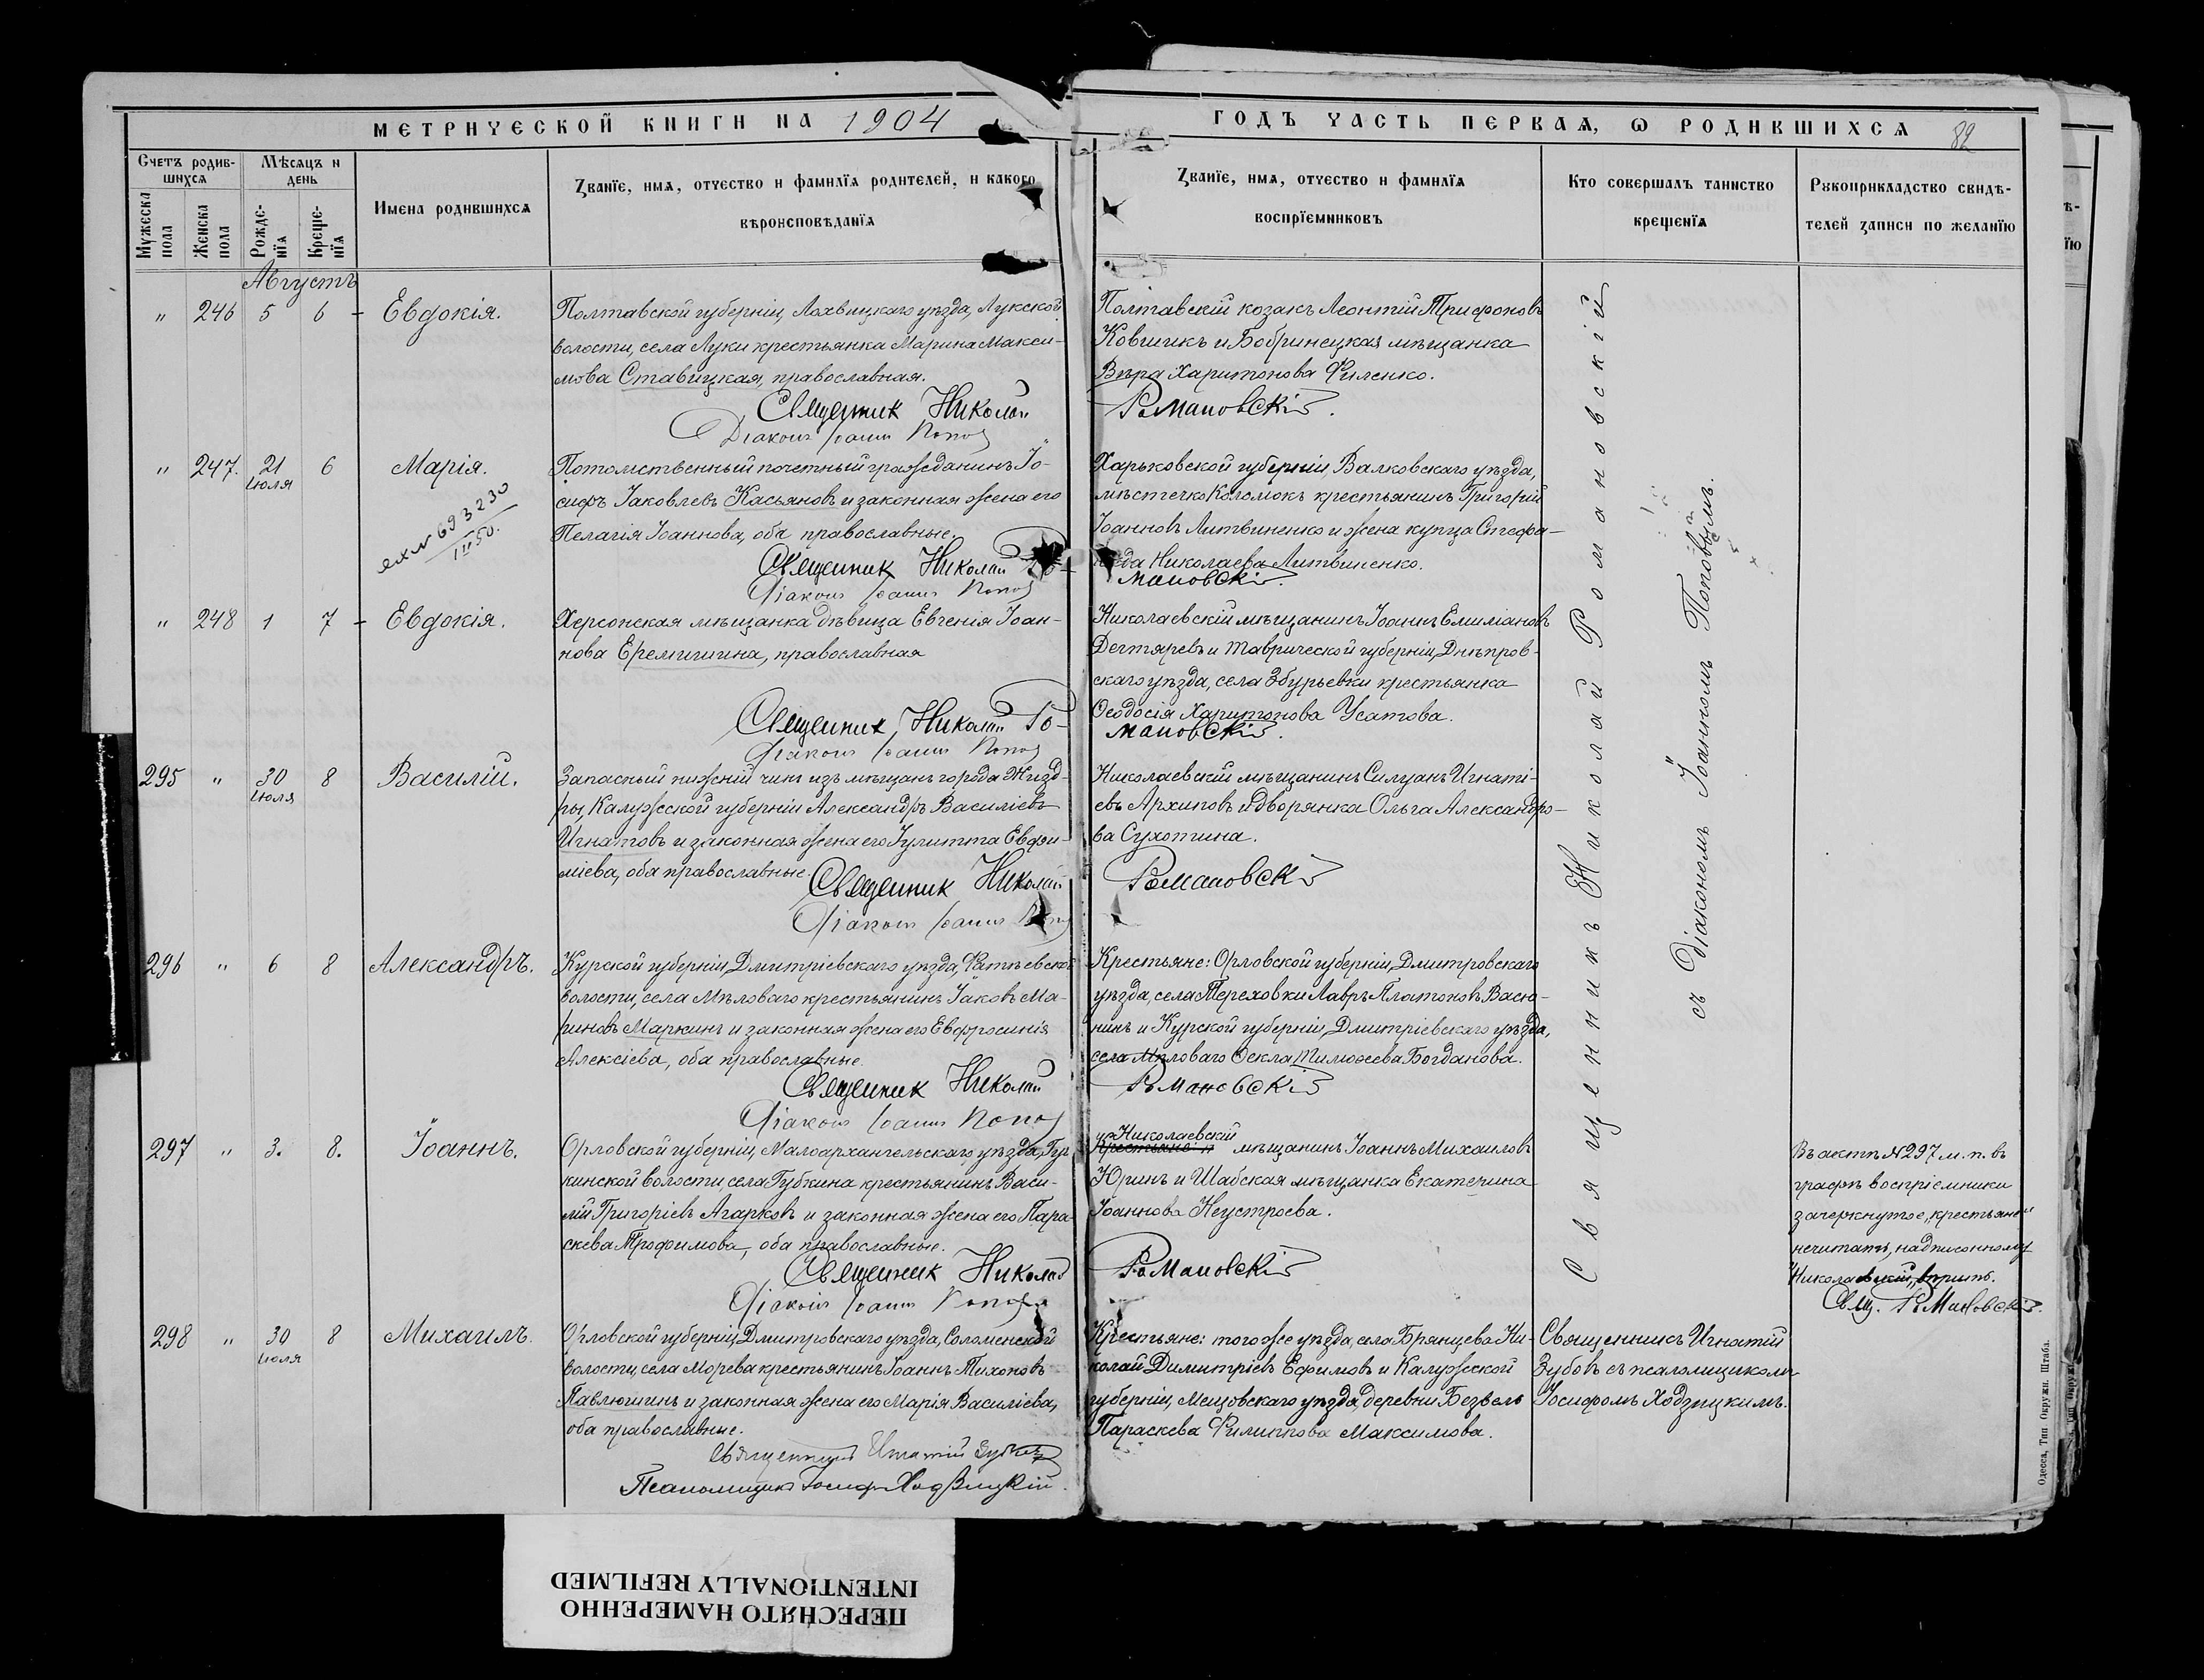 МЕТРИЧЕСКОЙ КНИГИ НА 1904
ГОДЪ ЧАСТЬ ПЕРВАЯ, Ѡ РОДИВШИХСЯ 82
Счетъ родив-
шихся
Мѣсяцъ и
день
Мужеска
пола
Женска
пола
Рожде-
нїя
Креще-
нїя
Имена родившихся
Званїе, имя, отчество и фамилїя родителей, и какого
вѣроисповѣданїя
Званїе, имя, отчество и фамилїя
воспрїемниковъ
Кто совершалъ таинство
крещенїя
Рукоприкладство свидѣ-
телей записи по желанїю
Августъ
" 246 5 6 - Евдокія.
Полтавской губерніи, Лохвицкаго уѣзда, Лукской
волости, села Луки крестьянка Марина Макси-
мова Ставицкая, православная.
Священник Николай
Діаконъ Іоаннъ Попов
Полтавскій козакъ Леонтій Трифоновъ
Ковшикъ и Бобринецкая мѣщанка
Вѣра Харитонова Филенко.
Романовскій.
" 247. 21 6 Марія.
Июля
Потомственный почетный гражданинъ Іо-
сифъ Іаковлевъ Касьяновъ и законная жена его
Пелагія Іоаннова, оба православные.
Священник Николай Ро-
Діаконъ Іоаннъ Попов
Харьковской губерніи, Валковскаго уѣзда,
мѣстечко Коломокъ крестьянинъ Григорій
Іоанновъ Литвиненко и жена купца Стефа-
нида Николаева Литвиненко.
мановскій.
" 248 1 7 - Евдокія.
Херсонская мѣщанка дѣвица Евгенія Іоан-
нова Еремишина, православная
Священник Николай Ро-
Діаконъ Іоаннъ Попов
Николаевскій мѣщанинъ Іоаннъ Емиліановъ
Дегтяревъ и Таврической губерніи, Днѣпров-
скаго уѣзда, села Збурьевки крестьянка
Ѳеодосія Харитонова Усатова.
мановскій.
295 " 30 8 Василій.
Июля
Запасный нижній чинъ изъ мѣщанъ города Жизд-
ры, Калужской губерніи Александръ Василіевъ
Игнатовъ и законная жена его Іулитта Евфи-
міева, оба православные.
Священник Николай
Діаконъ Іоаннъ Попов
Николаевскій мѣщанинъ Силуанъ Игнаті-
евъ Архиповъ и дворянка Ольга Александро-
ва Сухотина.
Романовскій
296 " 6 8 Александръ.
Курской губерніи, Дмитріевскаго уѣзда, Фатѣевской
волости, села Мѣловаго крестьянинъ Іаковъ Ма-
риновъ Маркинъ и законная жена его Евфросинія
Алексіева, оба православные.
Священник Николай
Діаконъ Іоаннъ Попов
Крестьяне: Орловской губерніи, Дмитровскаго
уѣзда, села Тереховки Лавръ Платоновъ Васю-
нинъ и Курской губерніи, Дмитріевскаго уѣзда,
села Мѣловаго Ѳекла Тимоѳеева Богданова.
Романовскій
297 " 3. 8. Іоаннъ.
Орловской губерніи, Малоархангельскаго уѣзда, Губ
кинской волости, села Губкина крестьянинъ Васи-
лій Григоріевъ Агарковъ и законная жена его Пара-
скева Трофимова, оба православные.
Священник Николай
Діаконъ Іоаннъ Попов
Николаевскій
Крестьяне: мѣщанинъ Іоаннъ Михаиловъ
Юринъ и Шабская мѣщанка Екатерина
Іоаннова Неустроева.
Романовскій
Въ актѣ № 297 м. п. въ
графѣ воспріемники
зачеркнутое "крестьяне"
нечитать, надписанному
"Николаевскій" вѣрить.
Свящ. Романовскій.
298 " 30 8 Михаилъ.
Июля
Орловской губерніи, Дмитровскаго уѣзда, Соломенской
волости, села Морева крестьянинъ Іоаннъ Тихоновъ
Павлюшинъ и законная жена его Марія Василіева,
оба православные.
Священникъ Игнатій Зубовъ
Псаломщикъ Іосифъ Ходзицкій.
Крестьяне: того же уѣзда, села Брянцева Ни-
колай Димитріевъ Ефимовъ и Калужской
губерніи, Мещовскаго уѣзда, деревни Безвель
Параскева Филиппова Максимова.
Священникъ Игнатій
Зубовъ съ псаломщикомъ
Іосифомъ Ходзицкимъ.
Священникъ Николай Романовскій
съ Діакономъ Іоанномъ Поповымъ.
вх № 693230
III 50.
Одесса, Тип. Окружн. Штаба.
ПЕРЕСНЯТО НАМЕРЕННО
INTENTIONALLY REFILMED